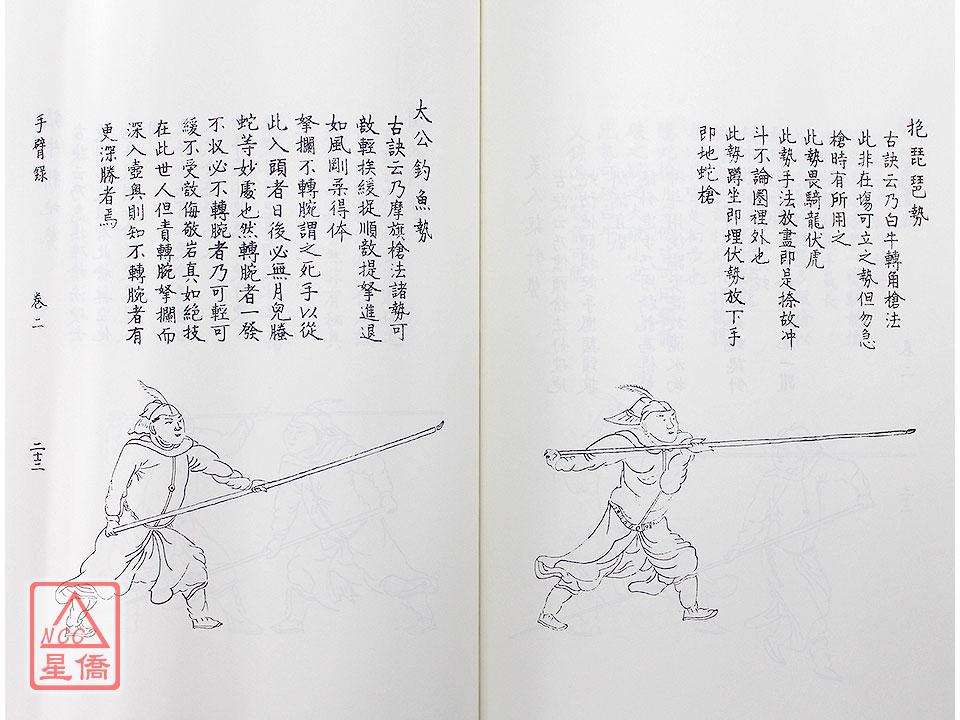 抱琵琶勢
古訣云乃白牛轉角槍法
此非在塲可立之勢但勿急
槍時有所用之
此勢畏騎龍伏虎
此勢手法放盡即是捺故冲
斗不論圈裡外也
此勢蹲坐即埋伏勢放下手
即地蛇槍
太公釣魚勢
古訣云乃摩旗槍法諸勢可
敵輕挨緩捉順敵提拏進退
如風剛柔得体
拏攔不轉腕謂之死手以從
此入頭者日後必無月兒騰
蛇等妙處也然轉腕者一發
不収必不轉腕者乃可輕可
緩不受敵侮敬岩真如絕技
在此世人但責轉腕拏攔而
深入壼奥則知不轉腕者有
更深勝者焉
手臂錄
卷二
二十二
NCC
星僑